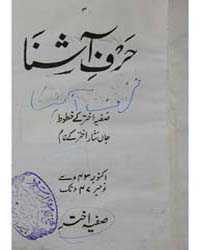 حرفِ آشنا
حرف آشنا
صفیہ اختر کے خطوط
جاں نثار اختر کے نام
اکتوبر ۴۳ء سے
نومبر ۴۷ء تک
صفیہ اختر